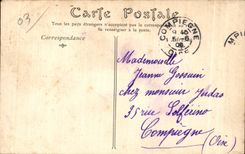 03
Carte Postale
Tous les pays étrangers n'acceptent pas la correspondance
se renseigner à la poste.
Correspondance
COMPIEGNE
OISE
Mademoiselle
Jeanne
chez monsieur
35 rue Solferino
Compiegne
(Oise)